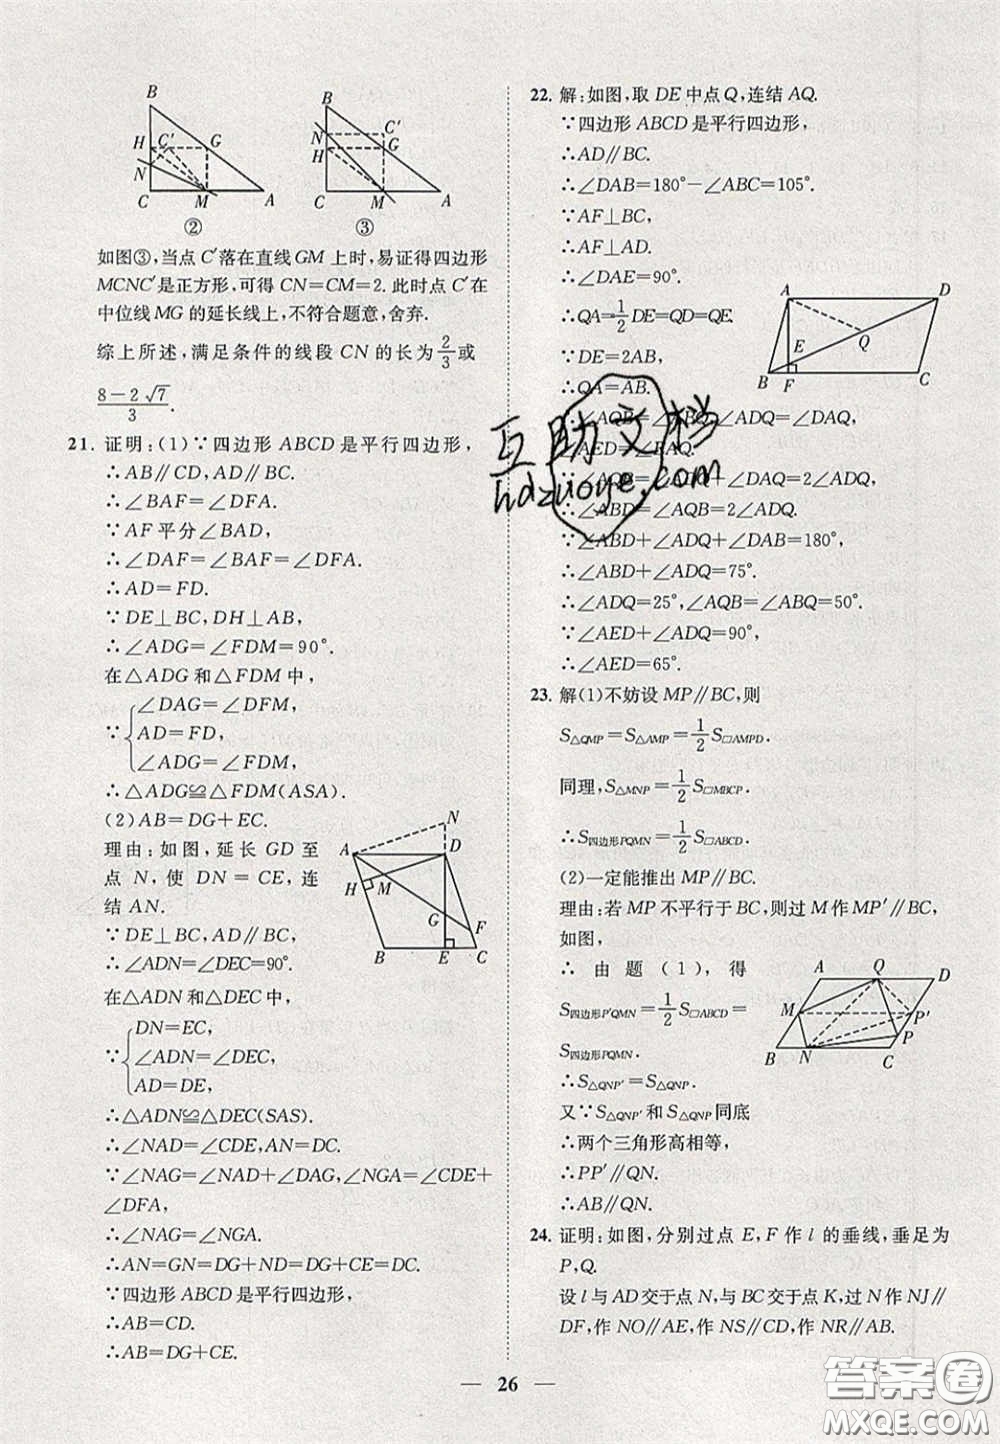 B
H
C′
G
N
C
M
A
②
B
N
C′
H
G
C
M
A
③
如图③,当点 C′落在直线 GM 上时,易证得四边形
MCNC′是正方形,可得 CN=CM=2. 此时点 C′在
中位线 MG 的延长线上,不符合题意,舍弃.
综上所述,满足条件的线段 CN 的长为 2/3 或
(8-2√7)/3.
21. 证明:(1)∵四边形 ABCD 是平行四边形,
∴AB∥CD,AD∥BC.
∴∠BAF=∠DFA.
∵AF 平分∠BAD,
∴∠DAF=∠BAF=∠DFA.
∴AD=FD.
∵DE⊥BC,DH⊥AB,
∴∠ADG=∠FDM=90°.
在△ADG 和△FDM 中,
∵{∠DAG=∠DFM,
AD=FD,
∠ADG=∠FDM,
∴△ADG≌△FDM(ASA).
(2)AB=DG+EC.
理由:如图,延长 GD 至
点 N,使 DN=CE,连
结 AN.
∵DE⊥BC,AD∥BC,
∴∠ADN=∠DEC=90°.
在△ADN 和△DEC 中,
∵{DN=EC,
∠ADN=∠DEC,
AD=DE,
∴△ADN≌△DEC(SAS).
∴∠NAD=∠CDE,AN=DC.
∵∠NAG=∠NAD+∠DAG,∠NGA=∠CDE+
∠DFA,
∴∠NAG=∠NGA.
∴AN=GN=DG+ND=DG+EC=DC.
∵四边形 ABCD 是平行四边形,
∴AB=CD.
∴AB=DG+CE.
N
A
D
H
M
G
F
B
E
C
22. 解:如图,取 DE 中点 Q,连结 AQ.
∵四边形 ABCD 是平行四边形,
∴AD∥BC.
∴∠DAB=180°-∠ABC=105°.
∵AF⊥BC,
∴AF⊥AD.
∴∠DAE=90°.
∴QA=1/2 DE=QD=QE.
∵DE=2AB,
∴QA=AB.
∴∠AQB=∠ABD,∠ADQ=∠DAQ,
∠AED=∠EAQ.
∴∠AQB=∠ADQ+∠DAQ=2∠ADQ,
∴∠ABD=∠AQB=2∠ADQ.
∵∠ABD+∠ADQ+∠DAB=180°,
∴∠ABD+∠ADQ=75°.
∴∠ADQ=25°,∠AQB=∠ABQ=50°.
∵∠AED+∠ADQ=90°,
∴∠AED=65°.
A
D
E
Q
B
F
C
23. 解(1)不妨设 MP∥BC,则
S△QMP=S△AMP=1/2 S□AMPD.
同理,S△MNP=1/2 S□MBCP.
∴S四边形PQMN=1/2 S□ABCD.
(2)一定能推出 MP∥BC.
理由:若 MP 不平行于 BC,则过 M 作 MP′∥BC,
如图,
∴由题(1),得
S四边形P′QMN=1/2 S□ABCD=
S四边形PQMN.
∴S△QNP′=S△QNP.
又∵S△QNP′和 S△QNP同底
∴两个三角形高相等,
∴PP′∥QN.
∴AB∥QN.
A
Q
D
M
P′
P
B
N
C
24. 证明:如图,分别过点 E,F 作 l 的垂线,垂足为
P,Q.
设 l 与 AD 交于点 N,与 BC 交于点 K,过 N 作 NJ∥
DF,作 NO∥AE,作 NS∥CD,作 NR∥AB.
互助文档
hdzuoye.com
— 26 —
答案圈
MXQE.COM